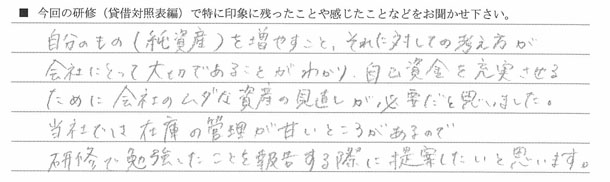 ■ 今回の研修（貸借対照表編）で特に印象に残ったことや感じたことなどをお聞かせ下さい。
自分のもの（純資産）を増やすこと、それに対しての考え方が
会社にとって大切であることがわかり、自己資金を充実させる
ために会社のムダな資産の見直しが必要だと思いました。
当社では在庫の管理が甘いところがあるので
研修で勉強したことを報告する際に提案したいと思います。